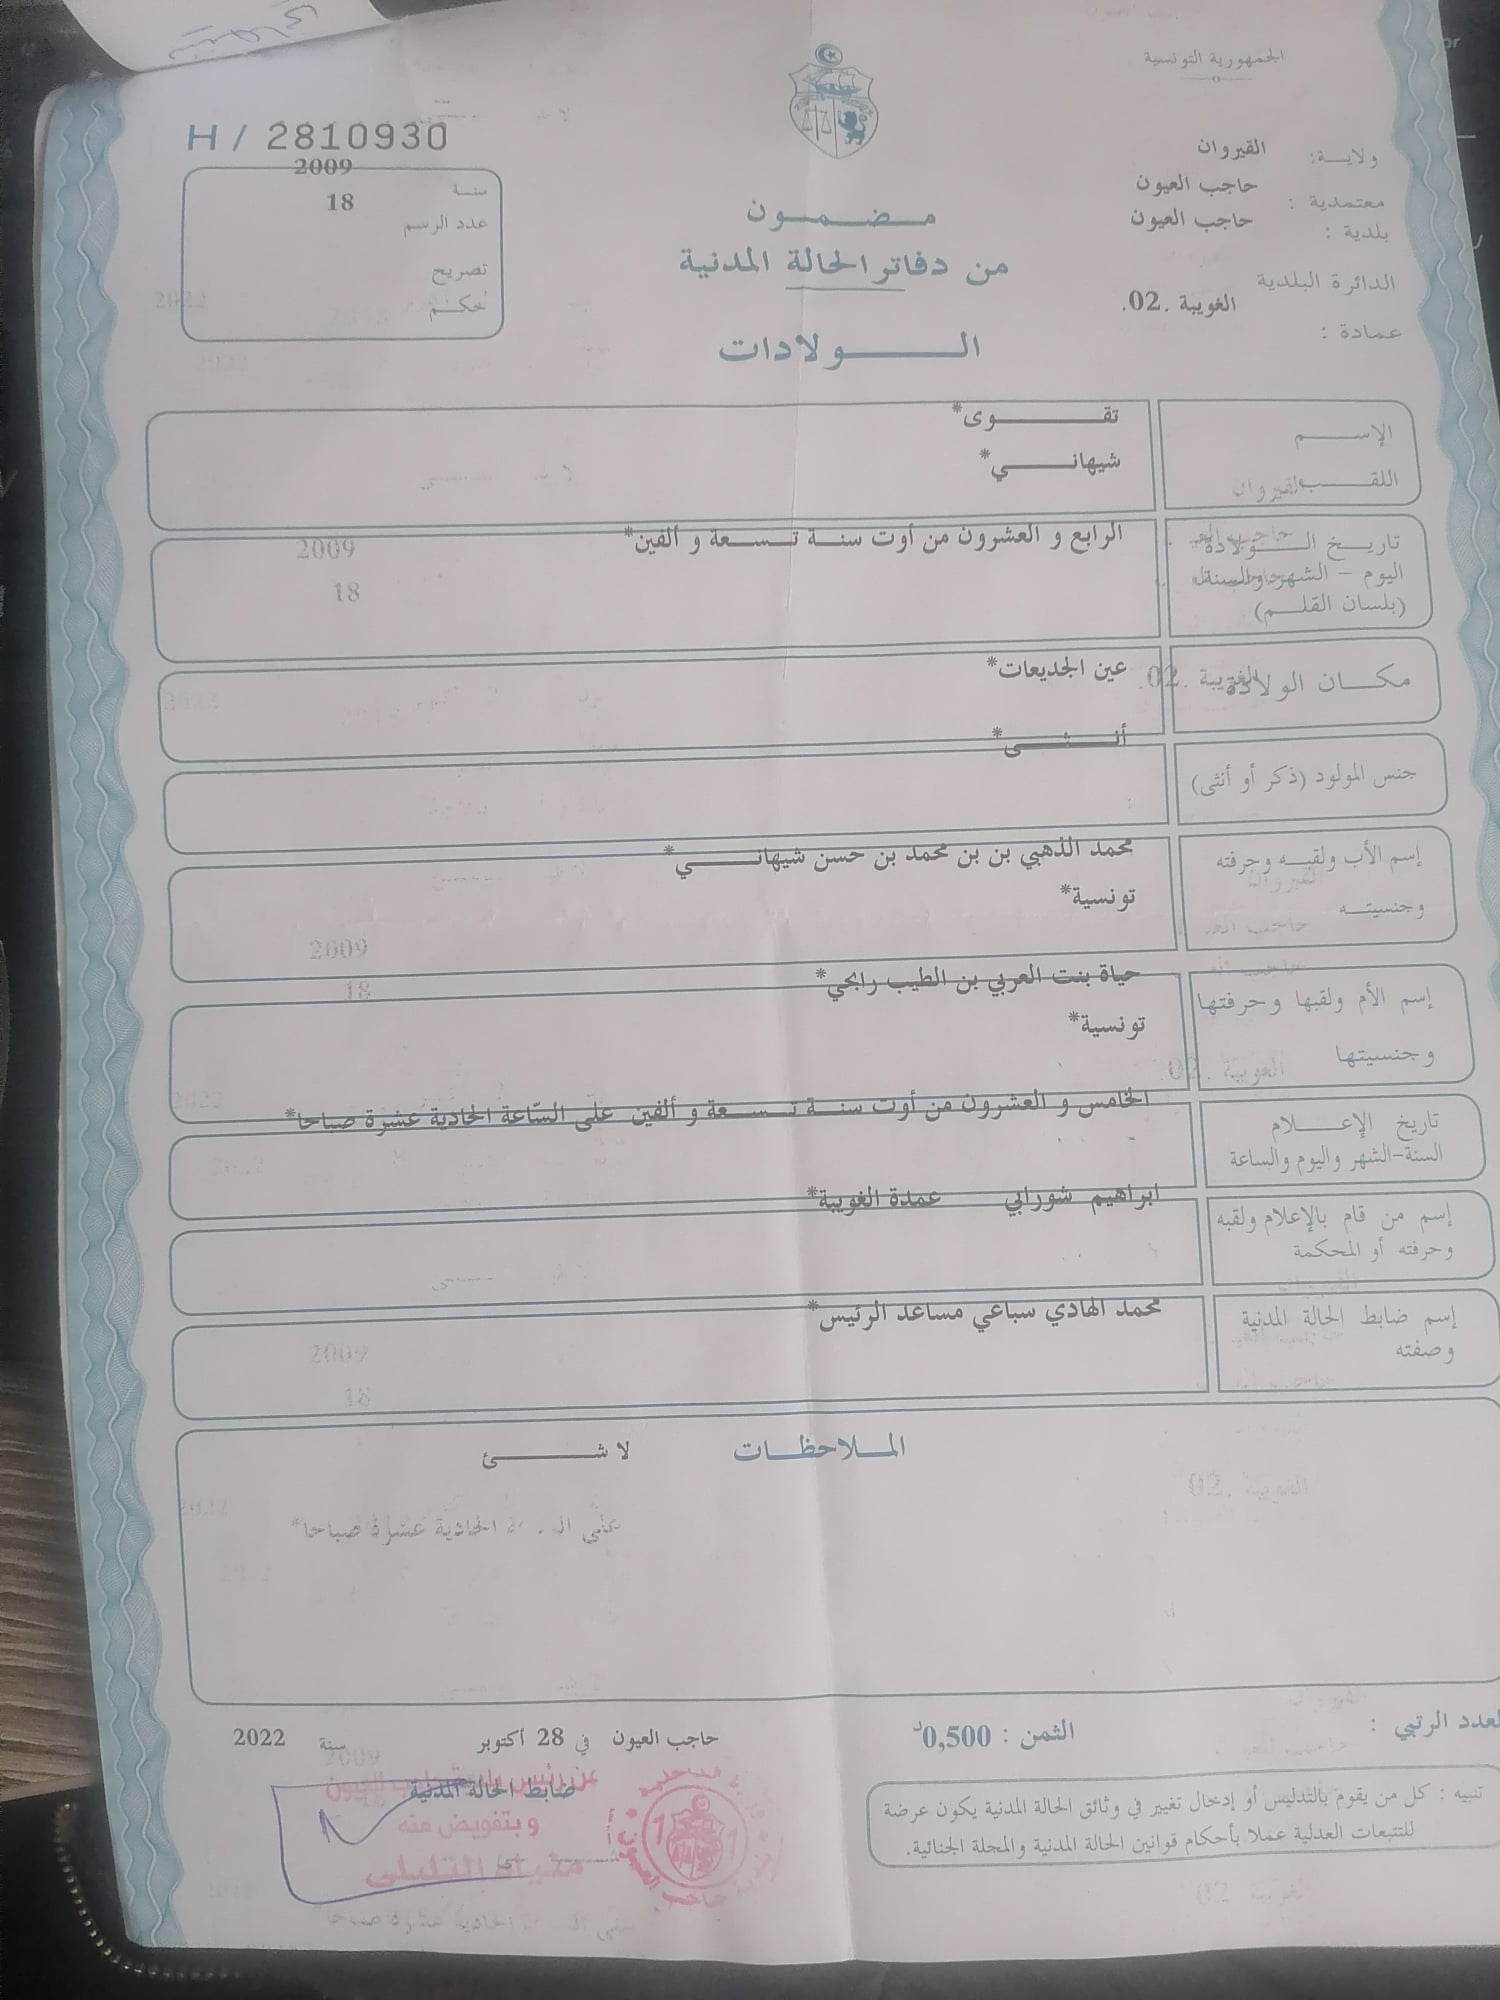 الجمهورية التونسية
ولاية: القيروان
معتمدية : حاجب العيون
بلدية : حاجب العيون
الدائرة البلدية
عمادة : الغويبة .02.
H / 2810930
سنة 2009
عدد الرسم 18
تصريح
حكم
مضمون
من دفاتر الحالة المدنية
الولادات
الإسم تقوى*
اللقب شيهاني*
تاريخ الولادة الرابع و العشرون من أوت سنة تسعة و ألفين*
اليوم - الشهر والسنة
(بلسان القلم)
مكان الولادة عين الجديعات*
جنس المولود (ذكر أو أنثى) أنثى*
إسم الأب ولقبه وحرفته محمد الذهبي بن بن محمد بن حسن شيهاني*
وجنسيته تونسية*
إسم الأم ولقبها وحرفتها حياة بنت العربي بن الطيب رابحي*
وجنسيتها تونسية*
تاريخ الإعلام الخامس و العشرون من أوت سنة تسعة و ألفين على السّاعة الحادية عشرة صباحا*
السنة-الشهر واليوم والساعة
إسم من قام بالإعلام ولقبه ابراهيم شورابي عمدة الغويبة*
وحرفته أو المحكمة
إسم ضابط الحالة المدنية محمد الهادي سباعي مساعد الرئيس*
وصفته
الملاحظات لا شئ
على الحادية عشرة صباحا*
العدد الرتبي :
الثمن : 0,500د
حاجب العيون في 28 أكتوبر سنة 2022
ضابط الحالة المدنية
عن رئيس بلدية حاجب العيون
وبتفويض منه
التليلي
تنبيه : كل من يقوم بالتدليس أو إدخال تغيير في وثائق الحالة المدنية يكون عرضة
للتتبعات العدلية عملا بأحكام قوانين الحالة المدنية والمجلة الجنائية.